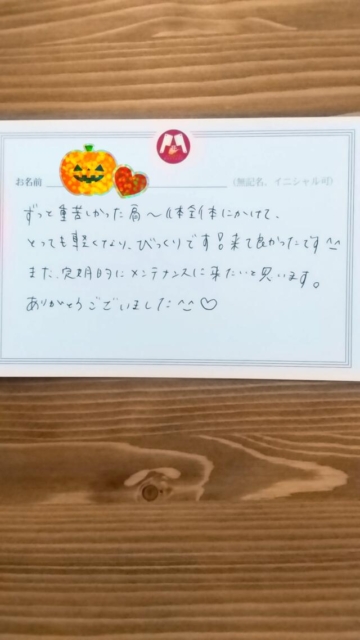 お名前
(無記名、イニシャル可)
ずっと重苦しかった肩～体全体にかけて、
とっても軽くなり、びっくりです!来て良かったです^^
また、定期的にメンテナンスに来たいと思います。
ありがとうございました^^♡